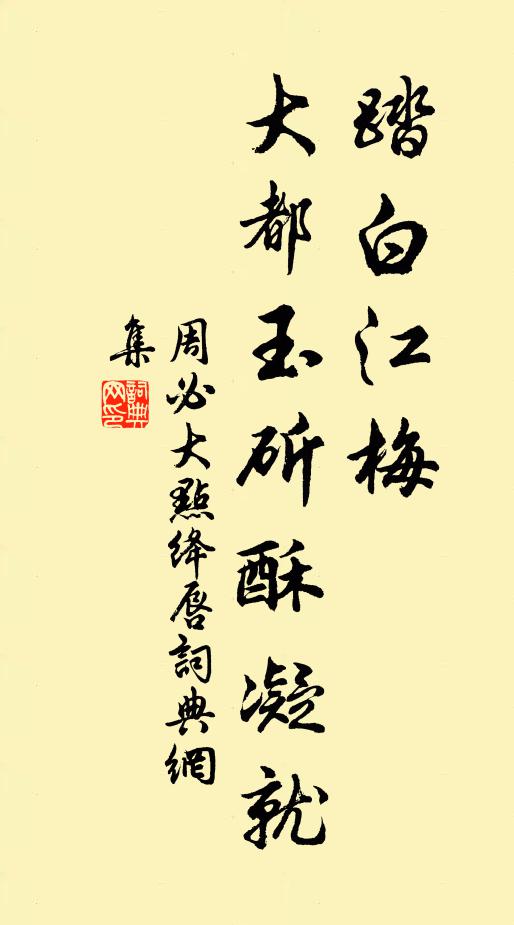 踏白江梅
大都玉斫酥凝就
周必大點绛唇詞典網
集
詞典網印